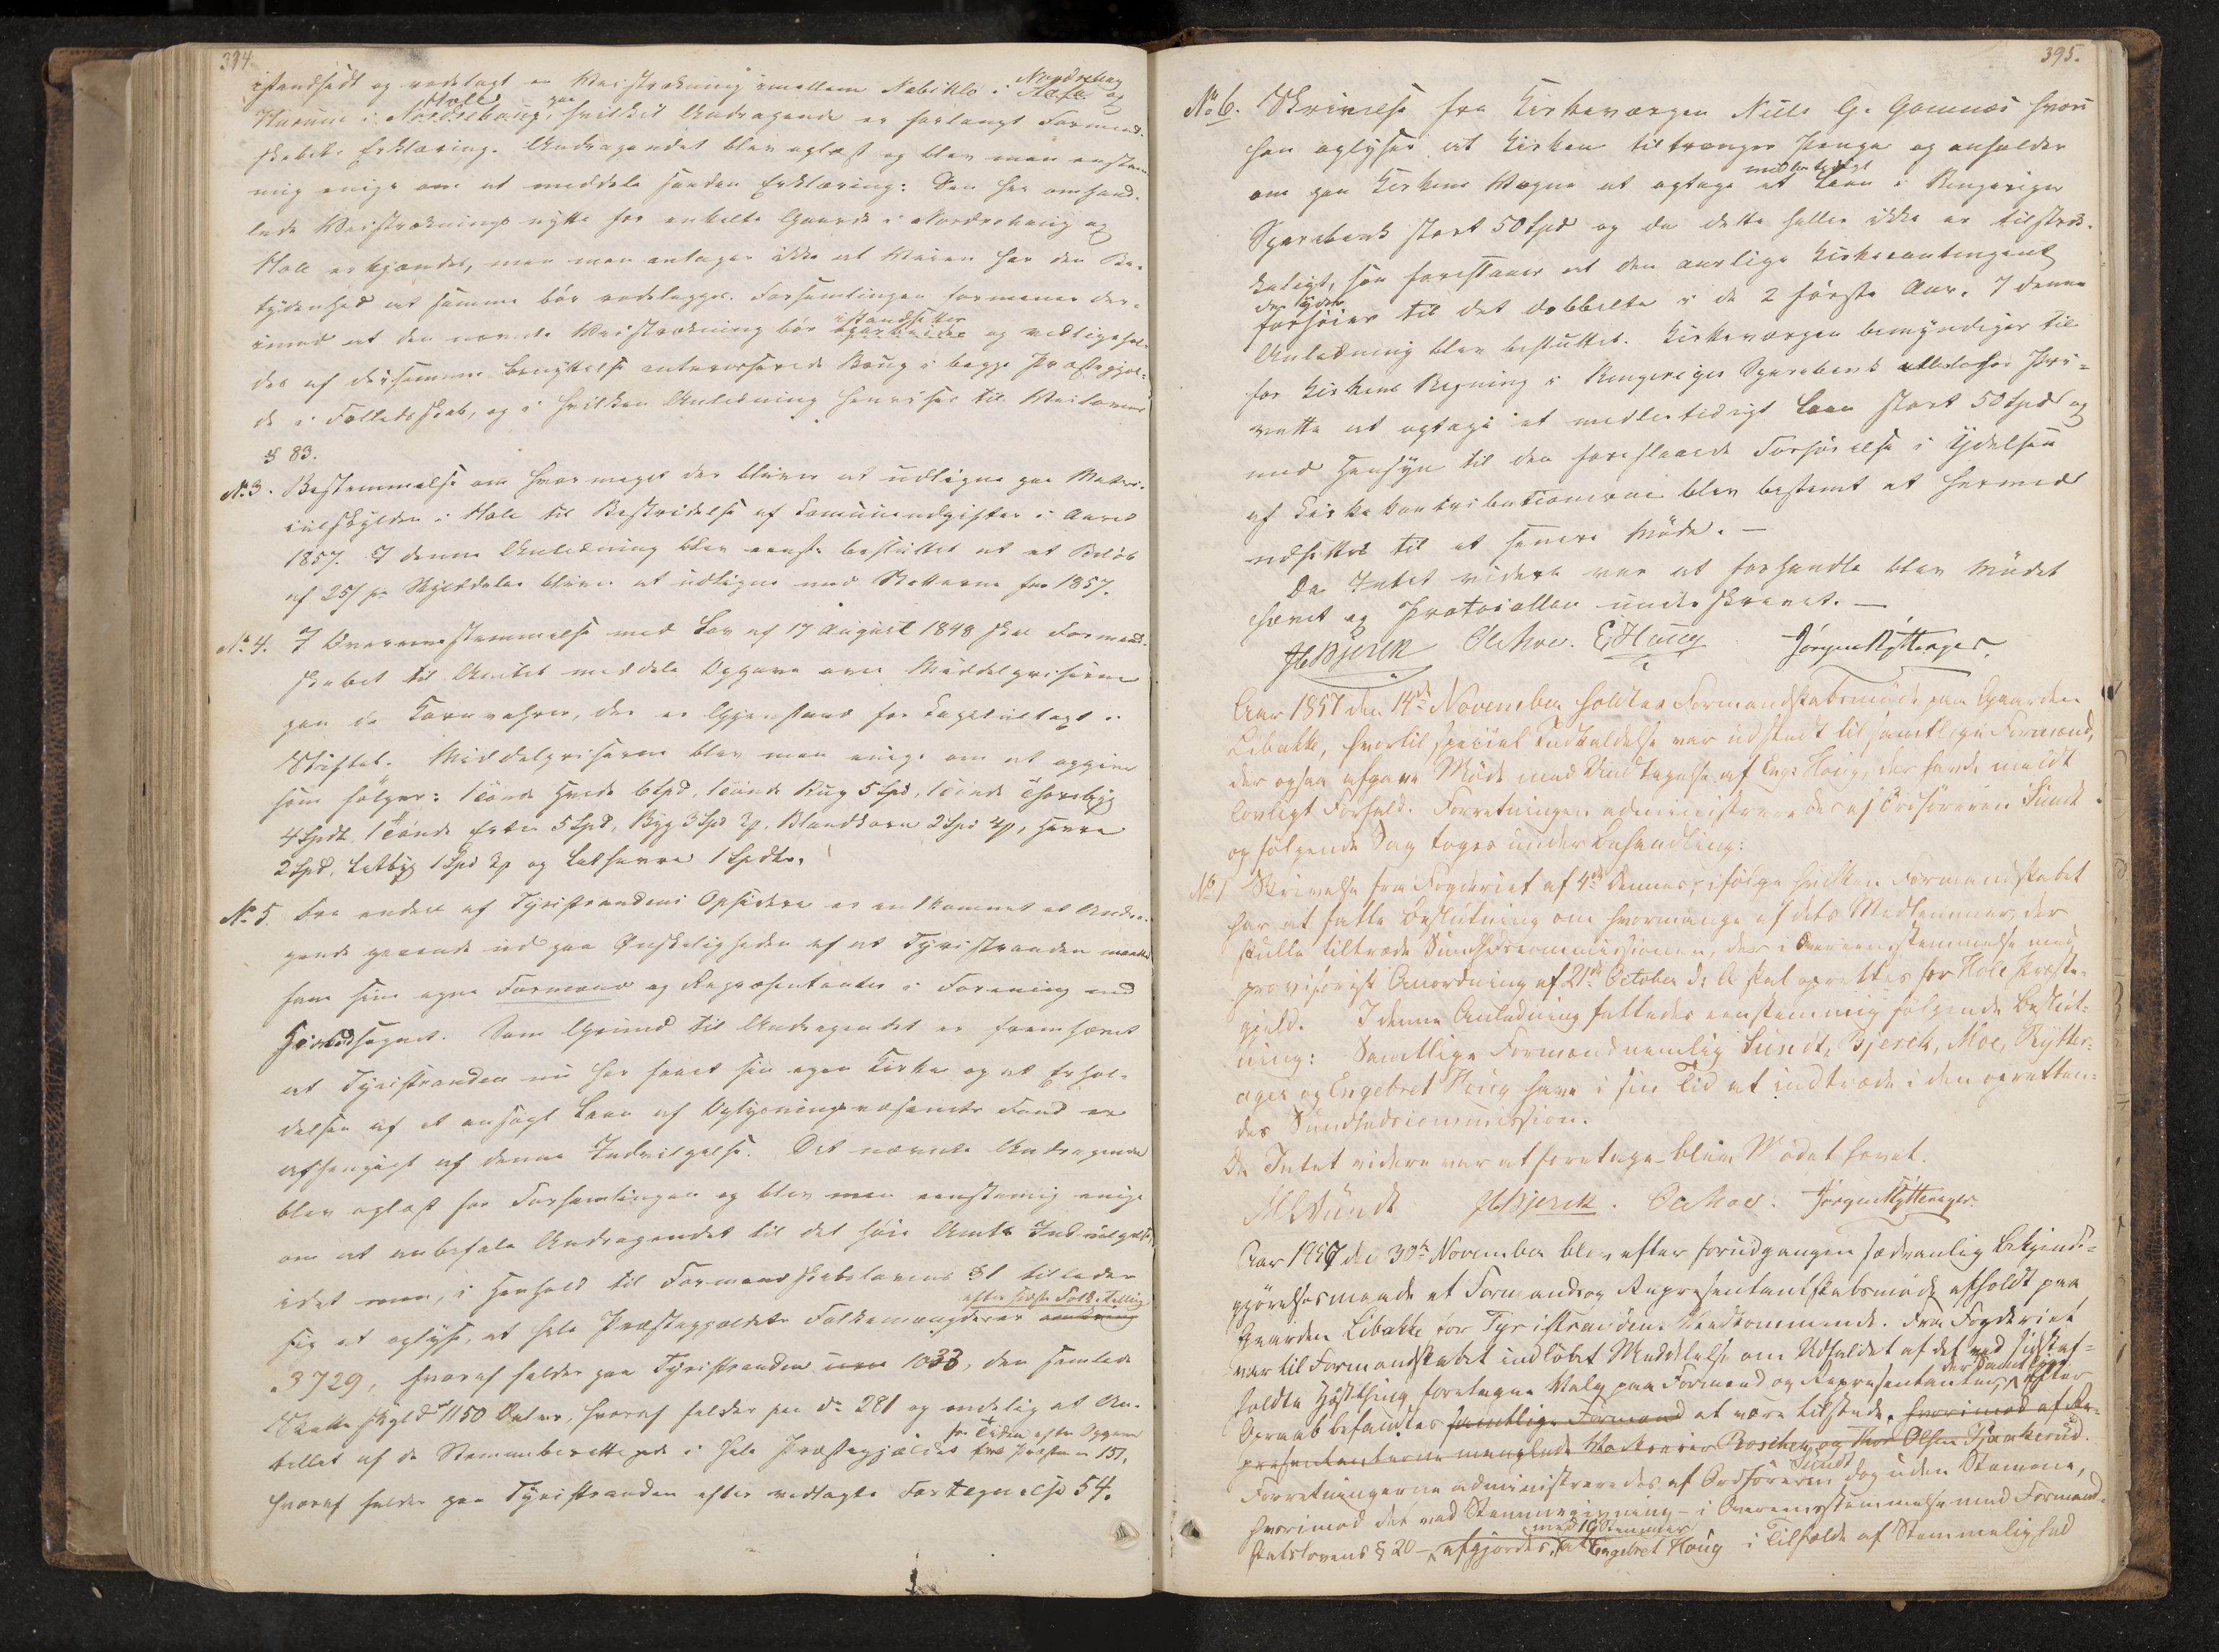 394.
istandsadt og nedlagt en Veistrækning imellem Nabiklo i Nordrehoug og
Harum i Hole paa hvilket Andragende er forlangt Formand-
skabets Erklæring. Andragendet blev oplæst og blev man eenstem-
mig enige om at meddele saadan Erklæring: Den her omhand-
lede Veistræknings nytte for enkelte Gaarde i Nordrehoug og
Hole erkjendes, men man antager ikke at Veien har den Be-
tydenhed at samme bør nedlægges. Forsamlingen formener der-
imod at den nævnte Veistrækning bør istandsættes og vedligehol-
des af de samme Benyttelse interesserede Brug i begge Præstegjel-
de i Fælledsskab, og i hvilken Anledning henvises til Veilovens
§ 83.
No 3. Bestemmelse om hvor meget der bliver at udligne paa Matri-
kulskylden i Hole til Bestridelse af Communeudgifter i Aaret
1857. I denne Anledning blev eenst. besluttet at et Beløb
af 25 s pr Skylddaler bliver at udligne med Skatterne for 1857.
No 4. I Overeensstemmelse med Lov af 17 August 1848 skal Formand-
skabet til Amtet meddele Opgave over Middelpriserne
paa de Kornvahrer, der er Gjenstand for Capitelstaxt i
Stiftet. Middelpriserne blev man enige om at opgive
som følger: 1 Tønde Hvede 6 Spd, 1 Tønde Rug 5 Spd, 1 Tønde Thorebyg
4 Spdl. 1 Tønde Erter 5 Spd, Byg 3 Spd 3 , Blandkorn 2 Spd 4 , Havre
2 Spd, Letbyg 1 Spd 3 og Lethavre 1 Spdlr.
No 5. Fra endeel af Tyristrandens Opsiddere er indkommet et Andra-
gende gaaende ud paa Ønskeligheden af at Tyristranden maatte
have sine egne Formænd og Repræsentanter i Forening med
Hovedsognet. Som Grund til Andragendet er fremhævet
at Tyristranden nu har faaet sin egen Kirke og at Erhol-
delsen af et ansøgt Laan af Oplysningsvæsenets Fond er
afhængigt af denne Indvilgelse. Det nævnte Andragende
blev oplæst for Forsamlingen og blev man eenstemmig enige
om at anbefale Andragendet til det høie Amts Indvilgelse,
idet man, i Henhold til Formandskabslovens § 1 tillader
sig at oplyse, at hele Præstegjeldets Folkemængde er efter sidste Folketælling
3729, hvoraf falder paa Tyristranden 1033, den samlede
Skatteskyld 1150 Daler, hvoraf falder paa do 281 og endelig at An-
tallet af de Stemmeberettigede i hele Præstegjeldet for Tiden efter Opgave fra Præsten 151,
hvoraf falder paa Tyristranden efter vedlagte Fortegnelse 54.
395.
No 6. Skrivelse fra Kirkeværgen Niils G. Gomnæs hvori
han oplyser at Kirken tiltrænger Penge og anholder
om paa Kirkens Vegne at optage et midlertidigt Laan i Ringeriges
Sparebank stort 50 Spd og da dette heller ikke er tilstræk-
keligt, han foreslaaer at den aarlige Kirkecontingent
der ydes forhøies til det dobbelte i de 2 første Aar. I denne
Anledning blev besluttet. Kirkeværgen bemyndiges til
for Kirkens Regning i Ringeriges Sparebank eller hos Pri-
vatte at optage et midlertidigt Laan stort 50 Spd og
med Hensyn til den foreslaaede Forhøielse i Ydelsen
af Kirkekontributionerne blev bestemt at hermed
udsættes til et senere Møde. —
Da Intet videre var at forhandle blev Mødet
hævet og Protocollen underskrevet. —
Bjerck Ole Moe. E Houg Jørgen Rytterager.
Aar 1857 den 14de November holdtes Formandskabsmøde paa Gaarden
Libakke, hvortil speciel Indkaldelse var udstedt til samtlige Formænd,
der ogsaa afgave Møde med Undtagelse af Eng: Houg, der havde meldt
lovligt Forfald. Forretningen administreredes af Ordføreren Sundt
og følgende Sag toges under Behandling:
No 1 Skrivelse fra Fogderiet af 4de Dennes, ifølge hvilken Formandskabet
har at fatte Beslutning om hvormange af dets Medlemmer, der
skulle tiltræde Sundhedscommissionen, der i Overeensstemmelse med
provisorisk Anordning af 21de October d: A skal oprettes for Hole Præste-
gjeld. I denne Anledning fattedes eenstemmig følgende Beslut-
ning: Samtlige Formænd nemlig Sundt, Bjerck, Moe, Rytter-
ager og Engebret Houg have i sin Tid at indtræde i den oprettten-
des Sundhedscommission.
Da Intet videre var at foretage blev Mødet hævet.
Sundt Bjerck. Ole Moe. Jørgen Rytterager.
Aar 1957 den 30te November blev efter forudgangen sædvanlig Bekjendt-
gjørelsesmaade et Formands og Representantskabsmøde afholdt paa
Gaarden Libakke for Tyristranden Vedkommende. Fra Fogderiet
var til Formandskabet indløbet Meddelelse om Udfaldet af det ved sidst af-
holdte Høstthing foretagne Valg paa Formænd og Repræsentanter, der samtlige efter
Opraab befandtes samtlige Formænd at være tilstede, hvorimod af Re-
presentanterne manglede og Thor Olsen
Forretningerne administreredes af Ordføreren Sundt dog uden Stemme,
hvorimod det ved Stemmegivning – i Overeensstemmelse med Formand-
skabslovens § 20 – afgjordes med 19 Stemmer at Engebret Houg i Tilfælde af Stemmelighed